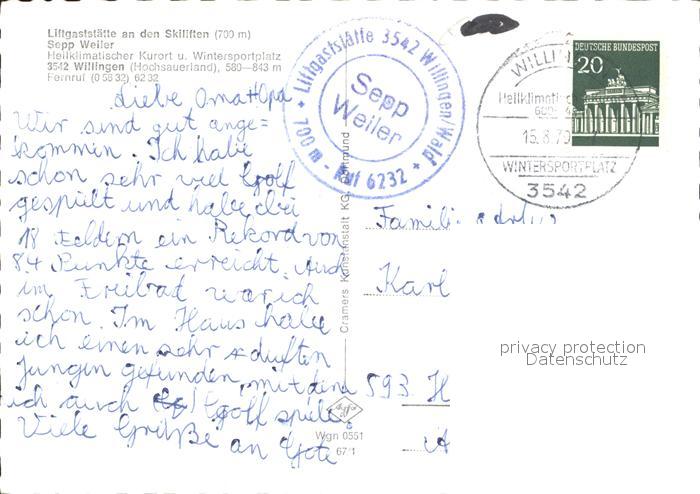 Liftgaststätte an den Skiliften (700 m)
Sepp Weiler
Heilklimatischer Kurort u. Wintersportplatz
3542 Willingen (Hochsauerland), 580—843 m
Fernruf (0 58 32) 62 32
Liebe Oma + Opa
Wir sind gut ange=
kommen. Ich habe
schon sehr viel Golf
gespielt und habe bei
18 Feldern ein Rekord von
84 Punkte erreicht. Auch
im Freibad war ich
schon. Im Haus habe
ich einen sehr dufften
Jungen gefunden, mit dem
ich auch Golf spiele.
Viele Grüße an
Liftgaststätte 3542 Willingen/Wald
Sepp
Weiler
700 m - Ruf 6232
DEUTSCHE BUNDESPOST
20
WILLIN
Heilklimatisc
15.8.70
WINTERSPORTPLATZ
3542
Famili
Karl
593 H
Cramers Kunstanstalt KG, Dortmund
Wgn 0551
67/1
privacy protection
Datenschutz